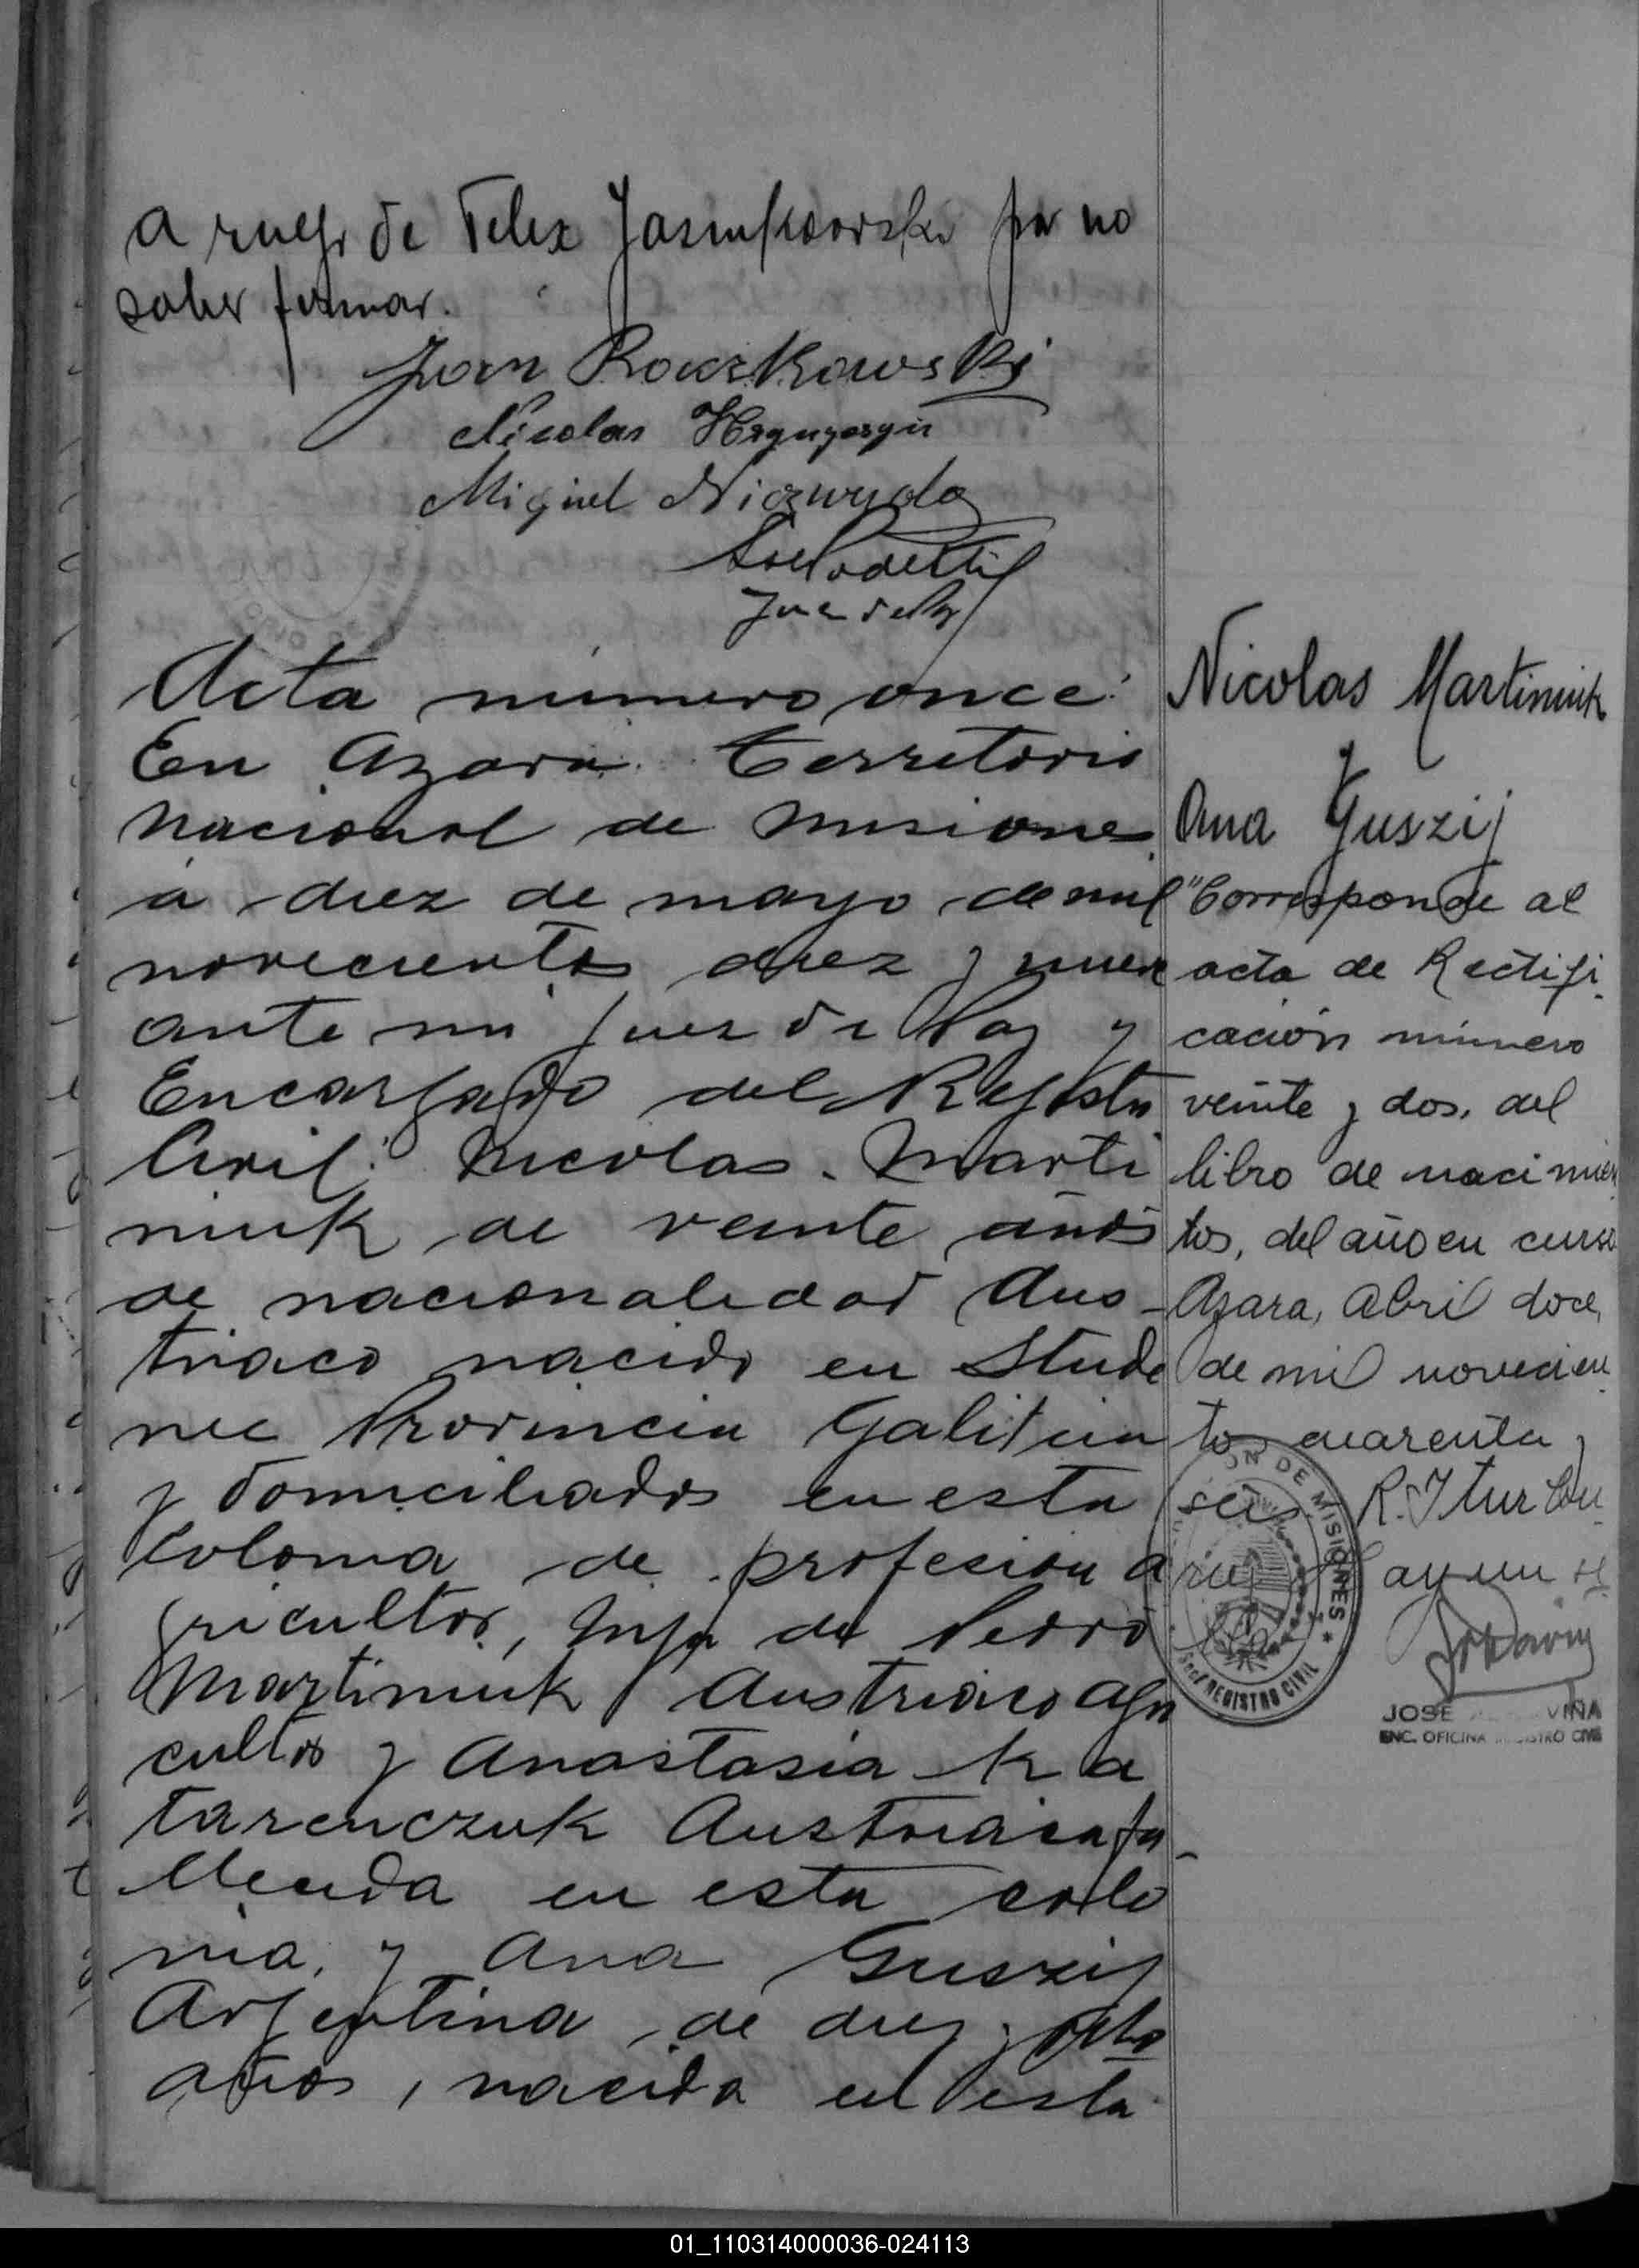 a ruego de Felix Jasinkowski por no
saber firmar.
Jorn Roczkowski
Nicolas
Miguel Niezwyda
Juez de Paz
Acta número once:
En Azara Territorio
Nacional de Misiones
a diez de mayo de mil
novecientos diez y nueve
ante mi Juez de Paz y
Encargado del Registro
Civil: Nicolas Marti
niuk de veinte años
de nacionalidad Aus-
triaco nacido en Stude
nec Provincia Galitcia
y domiciliados en esta
Colonia de profesion a
gricultor, hijo de Pedro
Martiniuk Austriaco agri
cultor y Anastasia Ka
tarenczuk Austriaca fa-
llecida en esta colo
nia, y Ana Guszij
Argentina, de diez y ocho
años, nacida en esta
Nicolas Martiniuk
y
Ana Guszij
"Corresponde al
acta de Rectifi
cación número
veinte y dos, del
libro de nacimien
tos, del año en curso
Azara, Abril doce,
de mil novecien
tos cuarenta y
seis R. Itur
JOSE VIÑA
ENC. OFICINA REGISTRO CIVIL
DE MISIONES * Sec. REGISTRO CIVIL *
01_110314000036-024113